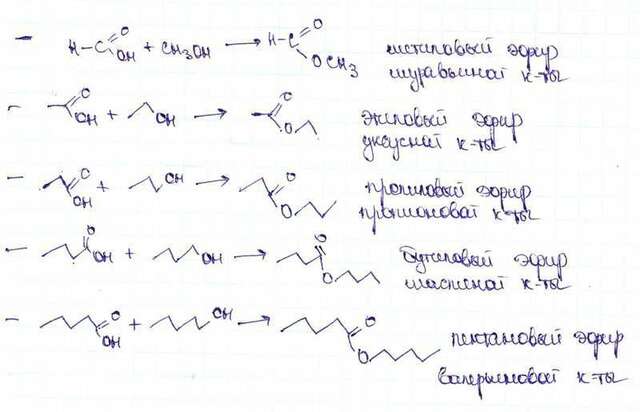 H-C O OH + CH3OH → H-C O O CH3 метиловый эфир
муравьиной к-ты
O OH + OH → O O этиловый эфир
уксусной к-ты
O OH + OH → O O пропиловый эфир
пропионовой к-ты
O OH + OH → O O бутиловый эфир
масляной к-ты
O OH + OH → O O пентановый эфир
валерьяновой к-ты